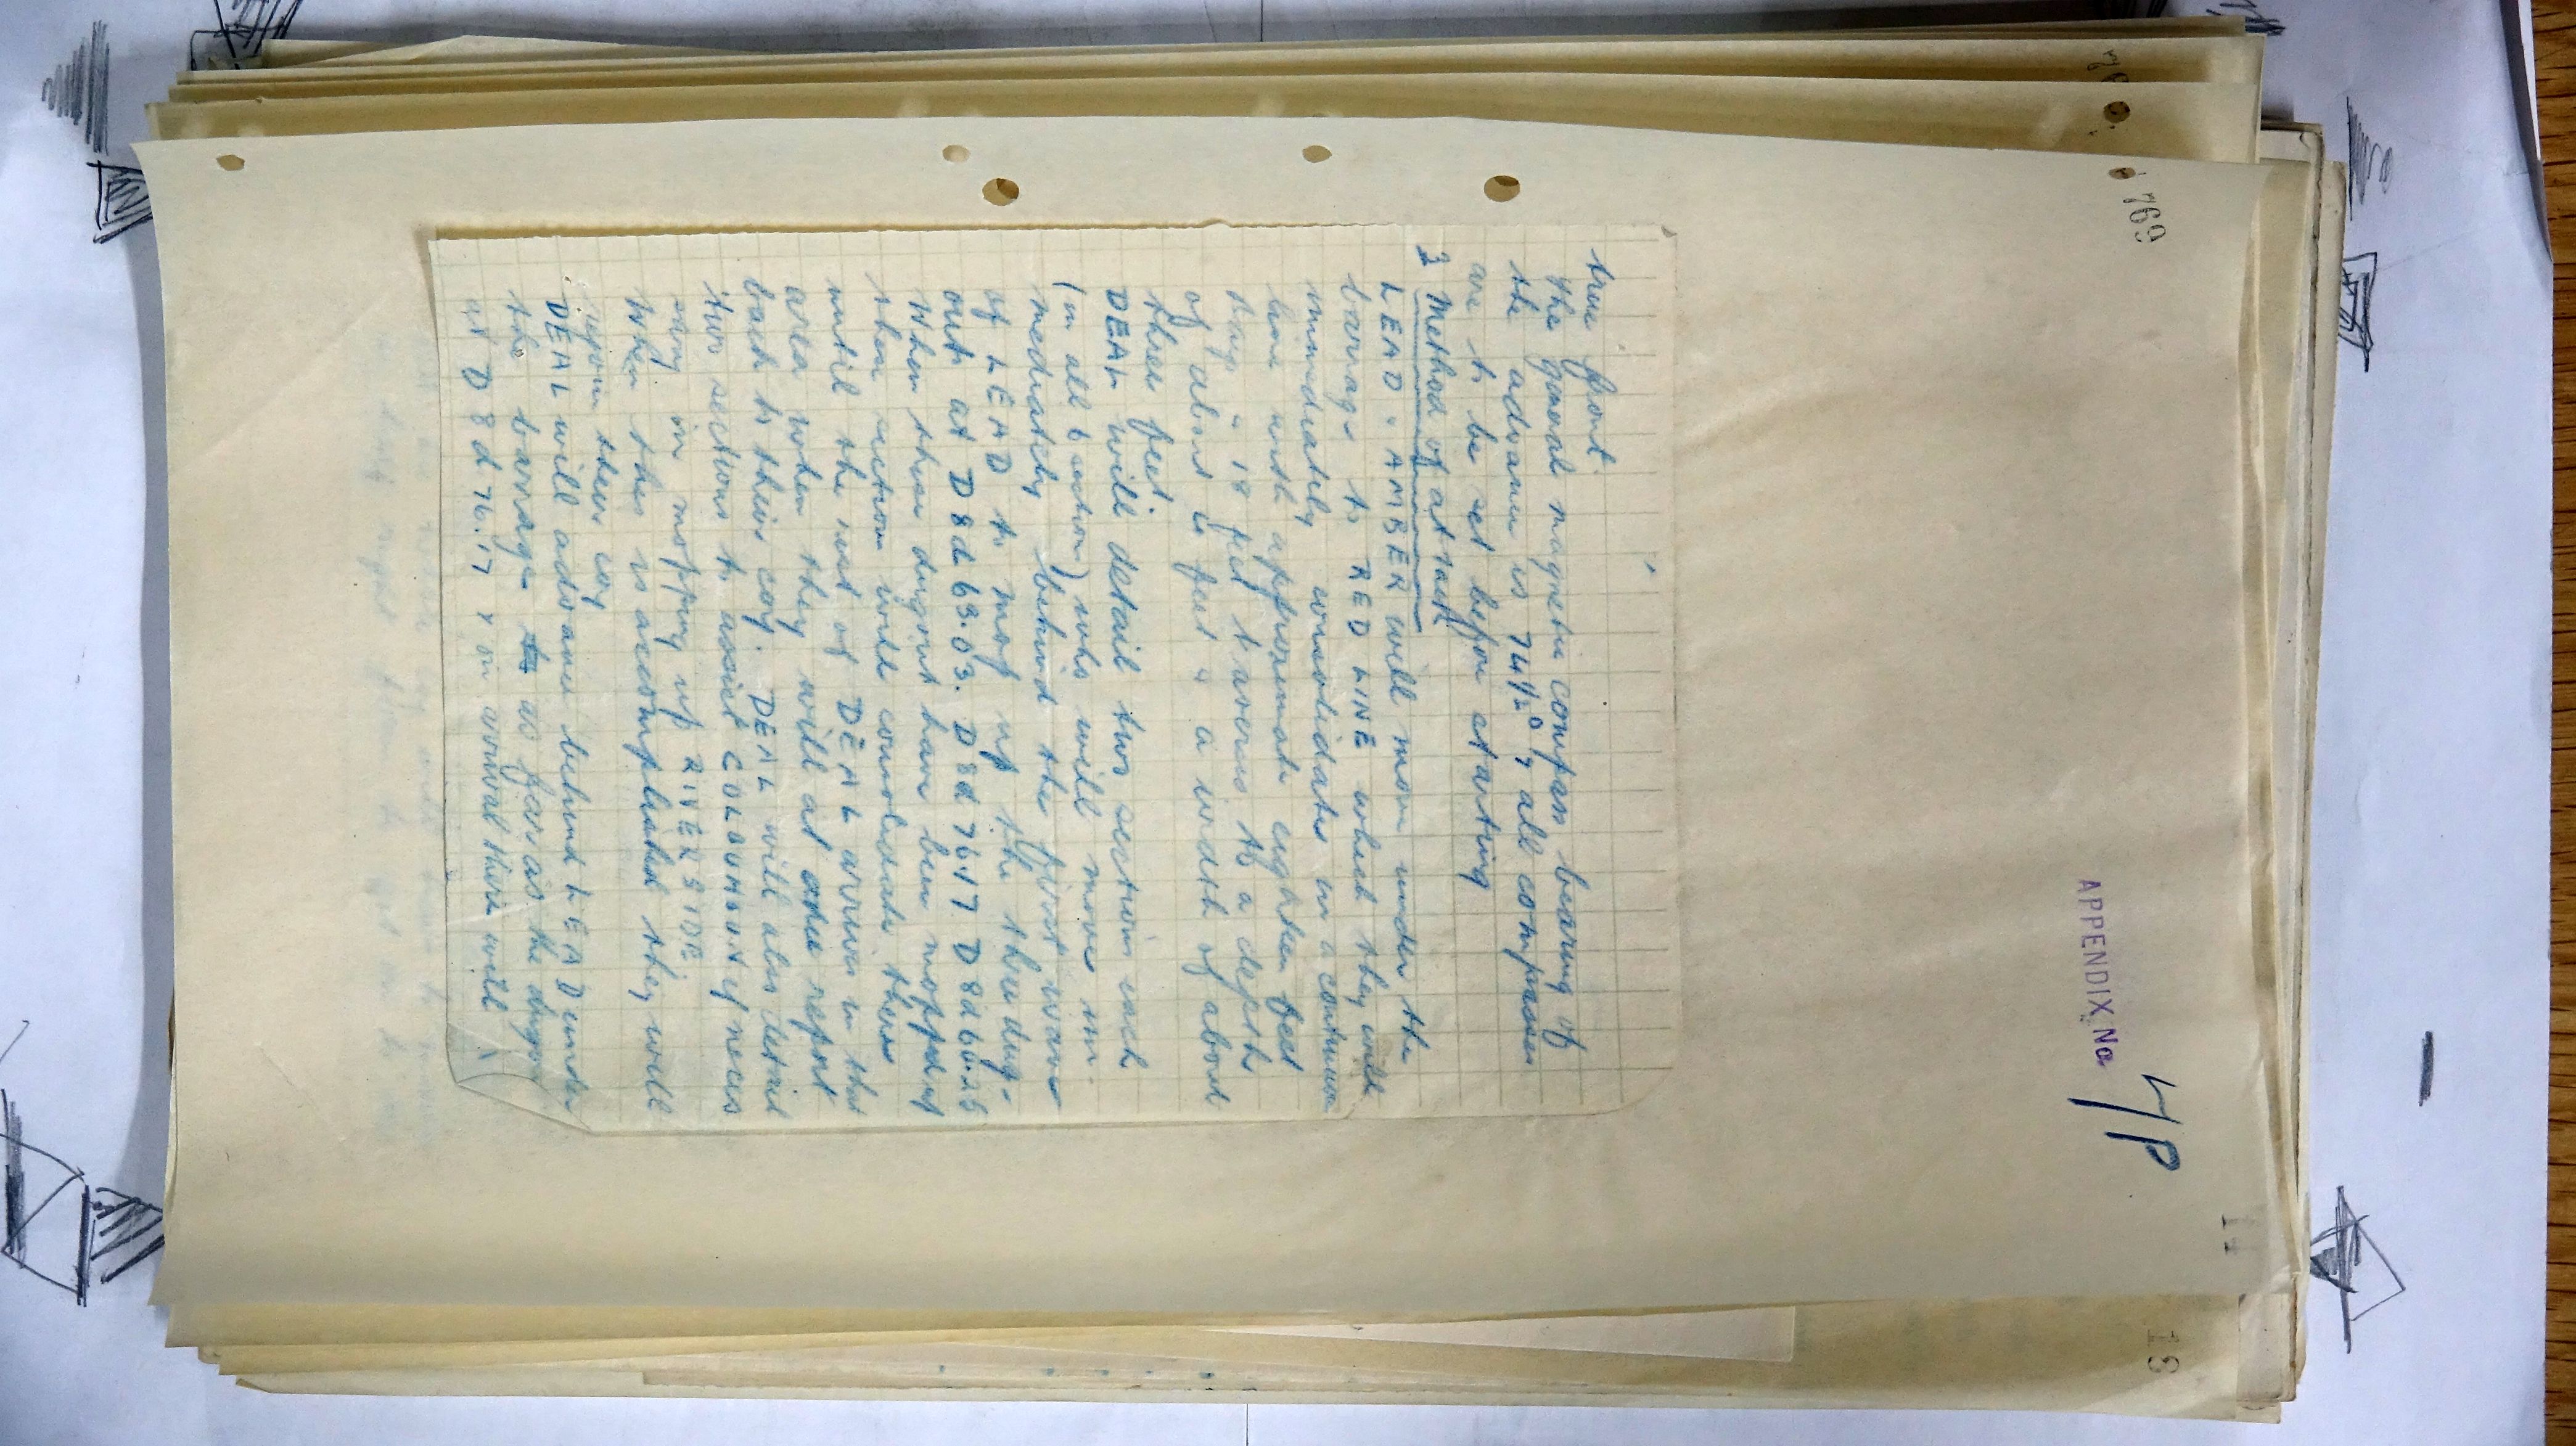 769
APPENDIX No. 4P
11
13
their front.
The general magnetic compass bearing of
the advance is 74½°, all compasses
are to be set before starting
3 Method of attack
LEAD & AMBER will move under the
barrage to RED LINE which they will
immediately consolidate in a continuous
line with approximate eighteen feet
bays & 18 feet traverses to a depth
of about 6 feet & a width of about
three feet.
DEAL will detail two sections each
(in all 6 section) who will move im-
mediately behind the first wave
of LEAD to mop up the three dug-
outs at D8d63.03. D8d76.17 D8d60.25
When these dugouts have been mopped up
these section will consolidate there
until the rest of DEAL arrives in that
area when they will at once report
back to their coy. DEAL will also detail
two sections to assist COLDUHOON if neces
sary in mopping up RIVERSIDE.
When this is accomplished they will
rejoin their coy
DEAL will advance behind LEAD under
the barrage as far as the dugout
at D8d76.17 & on arrival there will